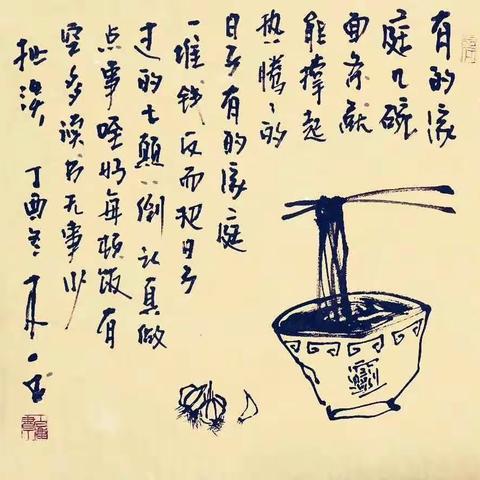 有的家
庭几碗
面条就
能撑起
热腾々的
日子有的家庭
一堆钱反而把日子
过的七颠八倒认真做
点事吃好每顿饭有
空多读书无事少
扯淡 丁酉冬